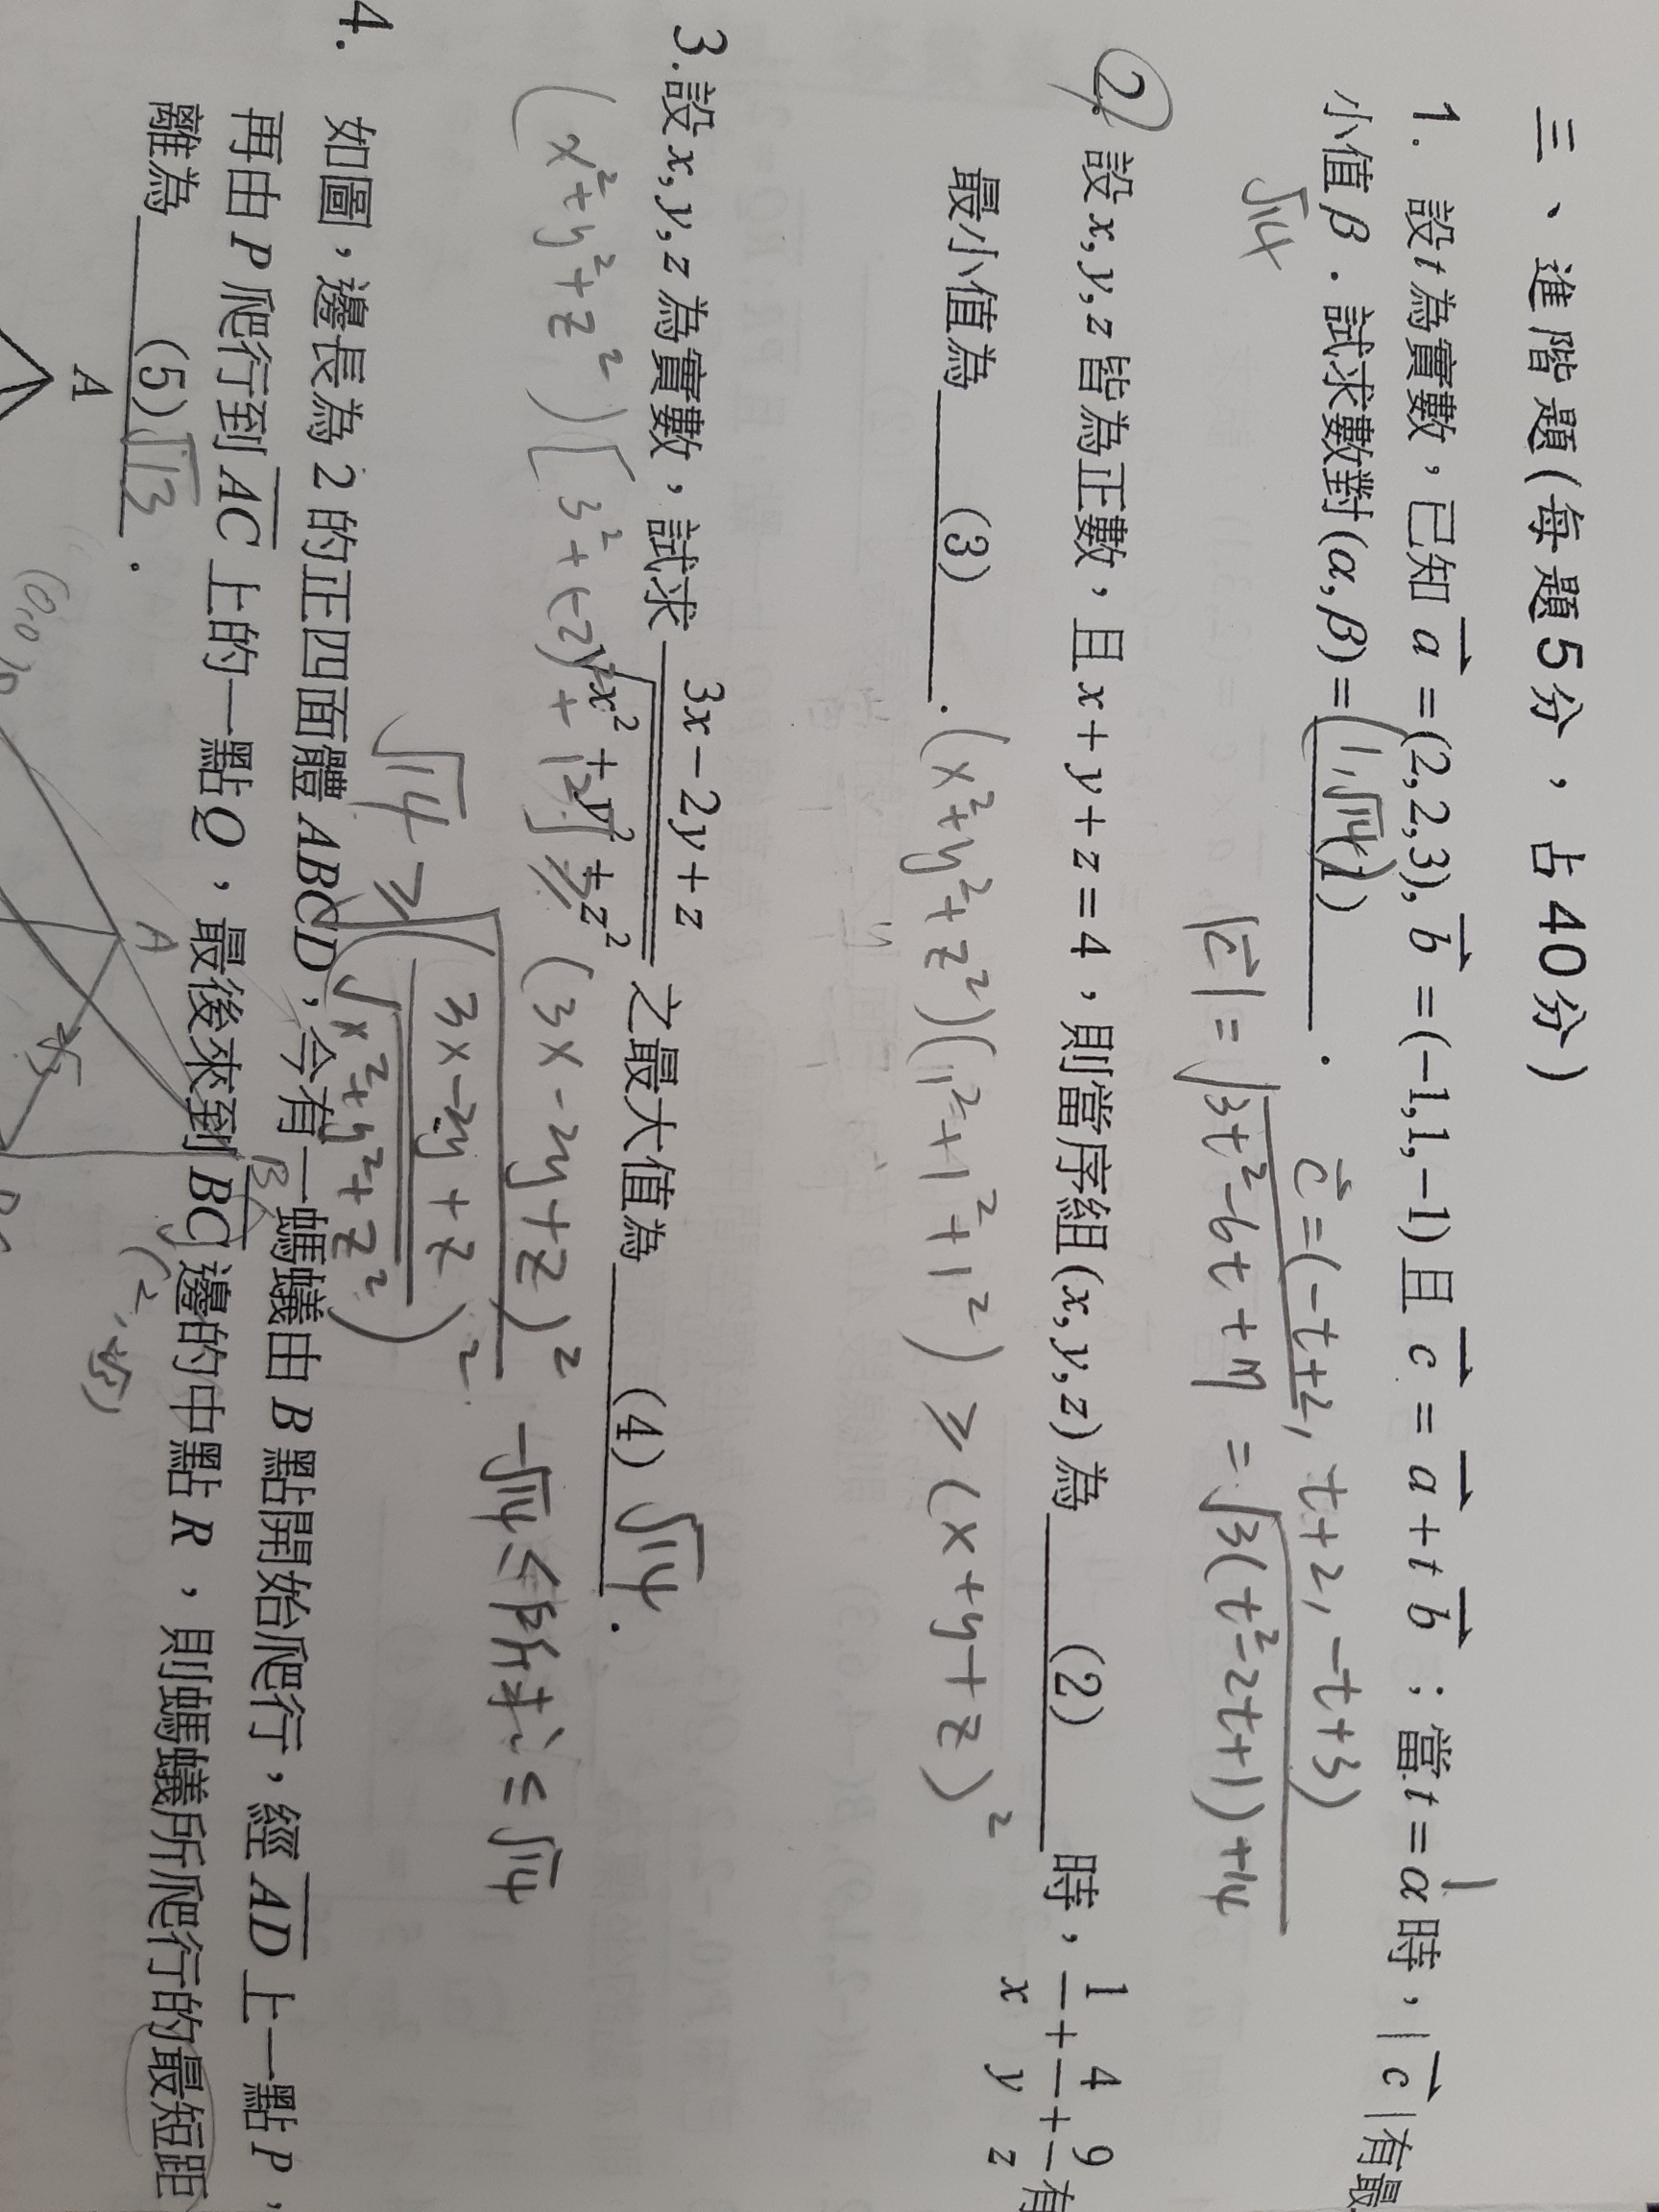 三、進階題(每題5分，占40分)
1. 設t為實數，已知 a⃗ =(2,2,3), b⃗ =(−1,1,−1) 且 c⃗ = a⃗ + t b⃗ ；當t=α時，| c⃗ |有最
1
小值β．試求數對(α,β)= (1,√14) (1) ．
c⃗=(−t+2, t+2, −t+3)
√14
|c⃗| = √3t²−6t+17 = √3(t²−2t+1)+14
2. 設x,y,z皆為正數，且x+y+z=4，則當序組(x,y,z)為 (2) 時，1/x+4/y+9/z有
最小值為 (3) ．
(x²+y²+z²)(1²+1²+1²) ≥ (x+y+z)²
3.設x,y,z為實數，試求 (3x−2y+z)/√x²+y²+z² 之最大值為 (4) √14 ．
(x²+y²+z²)[3²+(−2)²+1²] ≥ (3x−2y+z)²
−√14 ≤ 所求 ≤ √14
√14 ≥ √((3x−2y+z)/√x²+y²+z²)²
4. 如圖，邊長為2的正四面體ABCD，今有一螞蟻由B點開始爬行，經AD上一點P，
再由P爬行到AC上的一點Q，最後來到BC邊的中點R，則螞蟻所爬行的最短距
離為 (5) √13 ．
A
A
B
(0,0)
√3